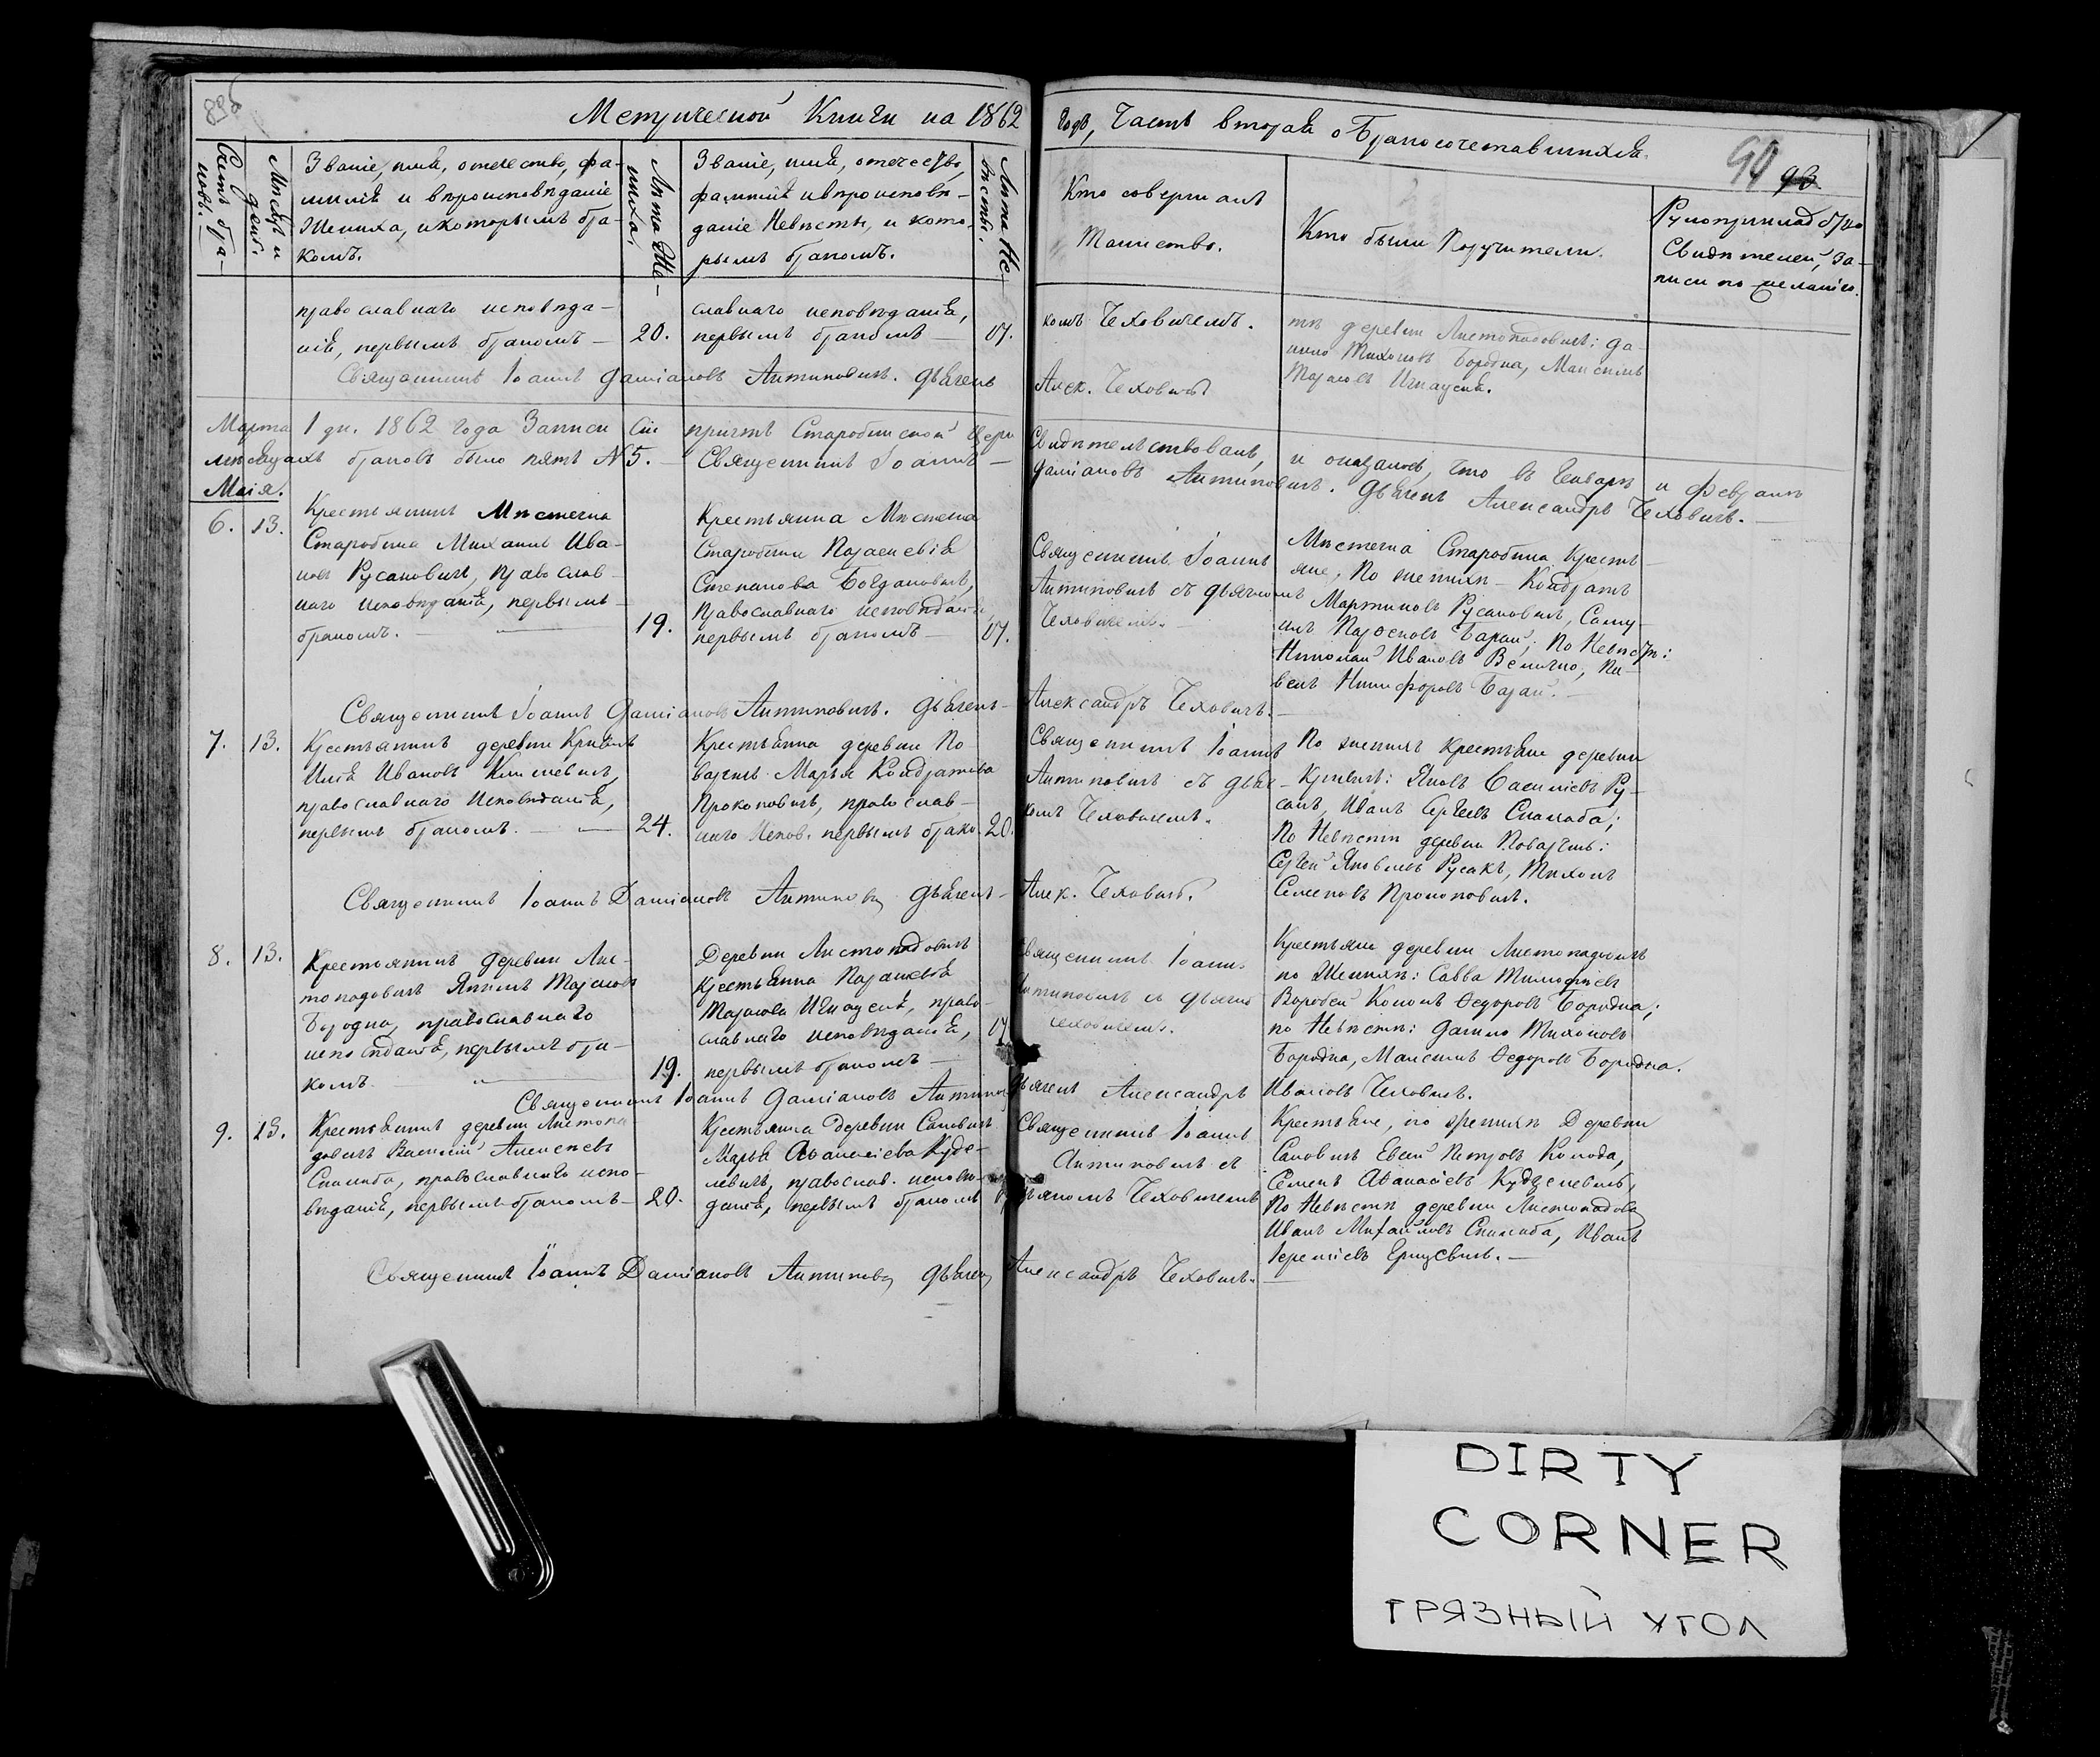 Метрической Книги на 1862 года, Часть вторая о Бракосочетавшихся.
90
Счетъ бра-
ковъ.
Мѣсяцъ и
день.
Званіе, имя, отечество, фа-
милія и вѣроисповѣданіе
Жениха, и которымъ бра-
комъ.
Лѣта Же-
ниха.
Званіе, имя, отечество,
фамилія и вѣроисповѣ-
даніе Невѣсты, и кото-
рымъ бракомъ.
Лѣта Не-
вѣсты.
Кто совершалъ
Таинство.
Кто были Поручители.
Рукоприкладство
Свидѣтелей, за-
писи по желанію.
православнаго исповѣда-
нія, первымъ бракомъ —
20.
славнаго исповѣданія,
первымъ бракомъ —
17.
комъ Чеховичемъ.
тѣ деревни Листопадовичъ: Да-
нило Тихоновъ Бородка, Максимъ
Тарасовъ Игнаценя.
Священникъ Іоаннъ Даміановъ Литиновичъ. Дьячекъ Алек. Чеховичъ
Марта 1 дн. 1862 года Записи сіи причтъ Старобинской церк. Свидѣтельствовалъ, и оказалось, что въ Генварѣ и Февралѣ
мѣсяцахъ браковъ было пять № 5. — Священникъ Іоаннъ — Даміановъ Литиновичъ. Дьячекъ Александръ Чеховичъ. —
Маія.
6. 13.
Крестьянинъ Мѣстечка
Старобина Михаилъ Ива-
новъ Русаковичъ, православ-
наго исповѣданія, первымъ
бракомъ.
19.
Крестьянка Мѣстечка
Старобина Параскевія
Степанова Богдановичъ,
Православнаго исповѣданія,
первымъ бракомъ —
17.
Священникъ Іоаннъ
Литиновичъ съ дьячкомъ
Чеховичемъ.
Мѣстечка Старобина Крестья-
не, По женихѣ — Кондратъ
Мартиновъ Русаковичъ, Саму-
илъ Парѳеновъ Баранъ; По Невѣстѣ:
Николай Ивановъ Величко, Па-
велъ Никифоровъ
Священникъ Іоаннъ Даміановъ Литиновичъ. Дьячекъ — Александръ Чеховичъ.
7. 13.
Крестьянинъ деревни Кривичъ
Илія Ивановъ
православнаго Исповѣданія,
первымъ бракомъ. —
24.
Крестьянка деревни По-
варчицъ Марья Кондратова
Прокоповичъ, православ-
наго Испов. первымъ брако.
20.
Священникъ Іоаннъ
Литиновичъ съ дьяч-
комъ Чеховичемъ.
По женихѣ Крестьяне деревни
Кривичъ: Яковъ Василіевъ Ру-
сакъ, Иванъ Сергѣевъ Скалаба;
По Невѣстѣ деревни Поварчицъ:
Сергѣй Яковлевъ Русакъ, Тихонъ
Семеновъ Прокоповичъ.
Священникъ Іоаннъ Даміановъ Литинов. Дьячекъ — Алек. Чеховичъ.
8. 13.
Крестьянинъ деревни Лис-
топадовичъ Якимъ Тарасовъ
Бородка, православнаго
исповѣданія, первымъ бра-
комъ
19.
Деревни Листопадовичъ
Крестьянка Параскевія
Тарасова Игнаценя, право-
славнаго исповѣданія,
первымъ бракомъ —
17
Священникъ Іоаннъ
Литиновичъ съ дьячко
Чеховичемъ.
Крестьяне деревни Листопадовичъ
по Женихѣ: Савва Тимофѣевъ
Воробей Кононъ Ѳедоровъ Бородка;
по Невѣстѣ: Данило Тихоновъ
Бородка, Максимъ Ѳедоровъ Бородка.
Священникъ Іоаннъ Даміановъ Литинов Дьячекъ Александръ Ивановъ Чеховичъ.
9. 13.
Крестьянинъ деревни Листопа-
довичъ Василій Алексѣевъ
Скалаба, православнаго испо-
вѣданія, первымъ бракомъ —
20.
Крестьянка деревни Саковичъ
Марья Аѳанасіева Куде-
левичъ, православ. исповѣ-
данія, первымъ бракомъ
Священникъ Іоаннъ
Литиновичъ съ
дьякомъ Чеховичемъ
Крестьяне, по женихѣ Деревни
Саковичъ Евсей Петровъ Колода,
Семенъ Аѳанасіевъ
По Невѣстѣ деревни Листопадов
Иванъ Михайловъ Скалаба, Иванъ
Іереміевъ
Священникъ Іоаннъ Даміановъ Литинов Дьячек Александръ Чеховичъ.
DIRTY
CORNER
ГРЯЗНЫЙ УГОЛ